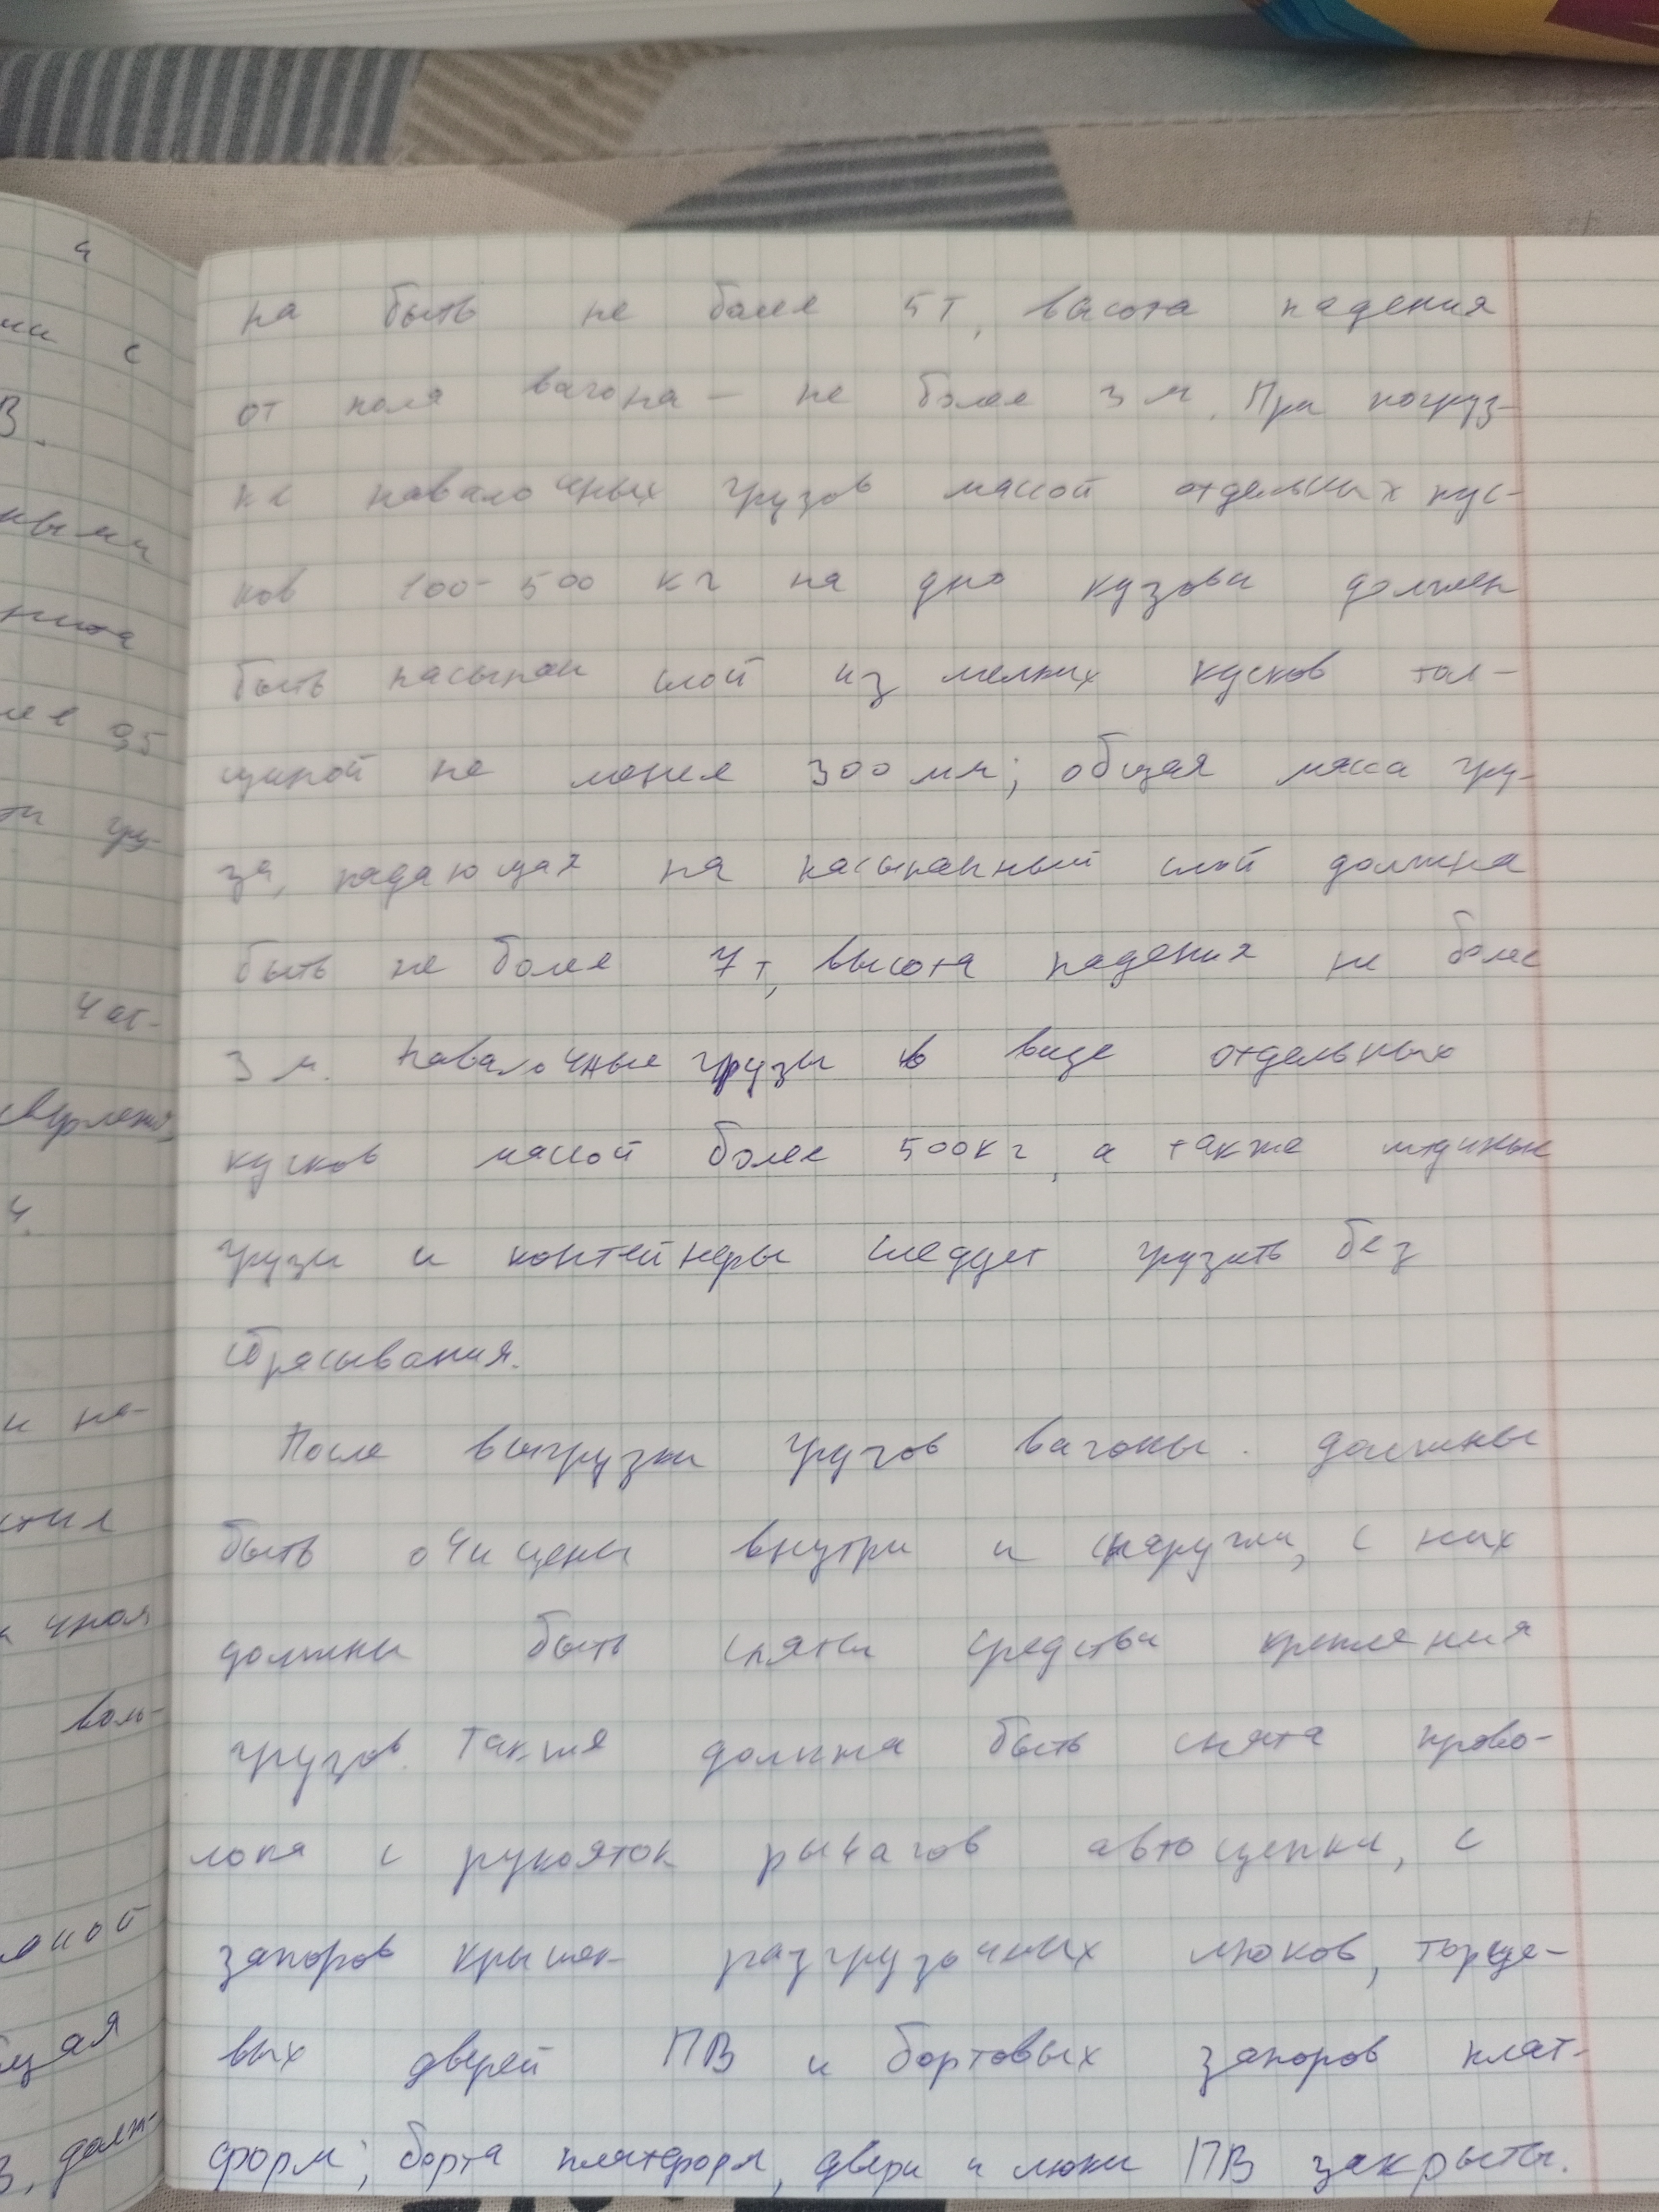 на быть не более 5т, высота падения
от пола вагона — не более 3 м. При погруз-
ке навалочных грузов массой отдельных кус-
ков 100-500 кг на дно кузова должен
быть насыпан слой из мелких кусков тол-
щиной не менее 300 мм; общая масса гру-
за, падающая на насыпанный слой должна
быть не более 7т, высота падения не более
3 м. Навалочные грузы в виде отдельных
кусков массой более 500кг, а также штучные
грузы и контейнеры следует грузить без
сбрасывания.
После выгрузки грузов вагоны должны
быть очищены внутри и снаружи, с них
должны быть сняты средства крепления
грузов. Также должна быть снята прово-
лока с рукояток рычагов автосцепки, с
запоров крышек разгрузочных люков, торце-
вых дверей ПВ и бортовых запоров плат-
форм; борта платформ, двери и люки ПВ закрыты.
и
с
В.
ными
95
гру-
час-
4.
и на-
валь-
щая
В, долж-